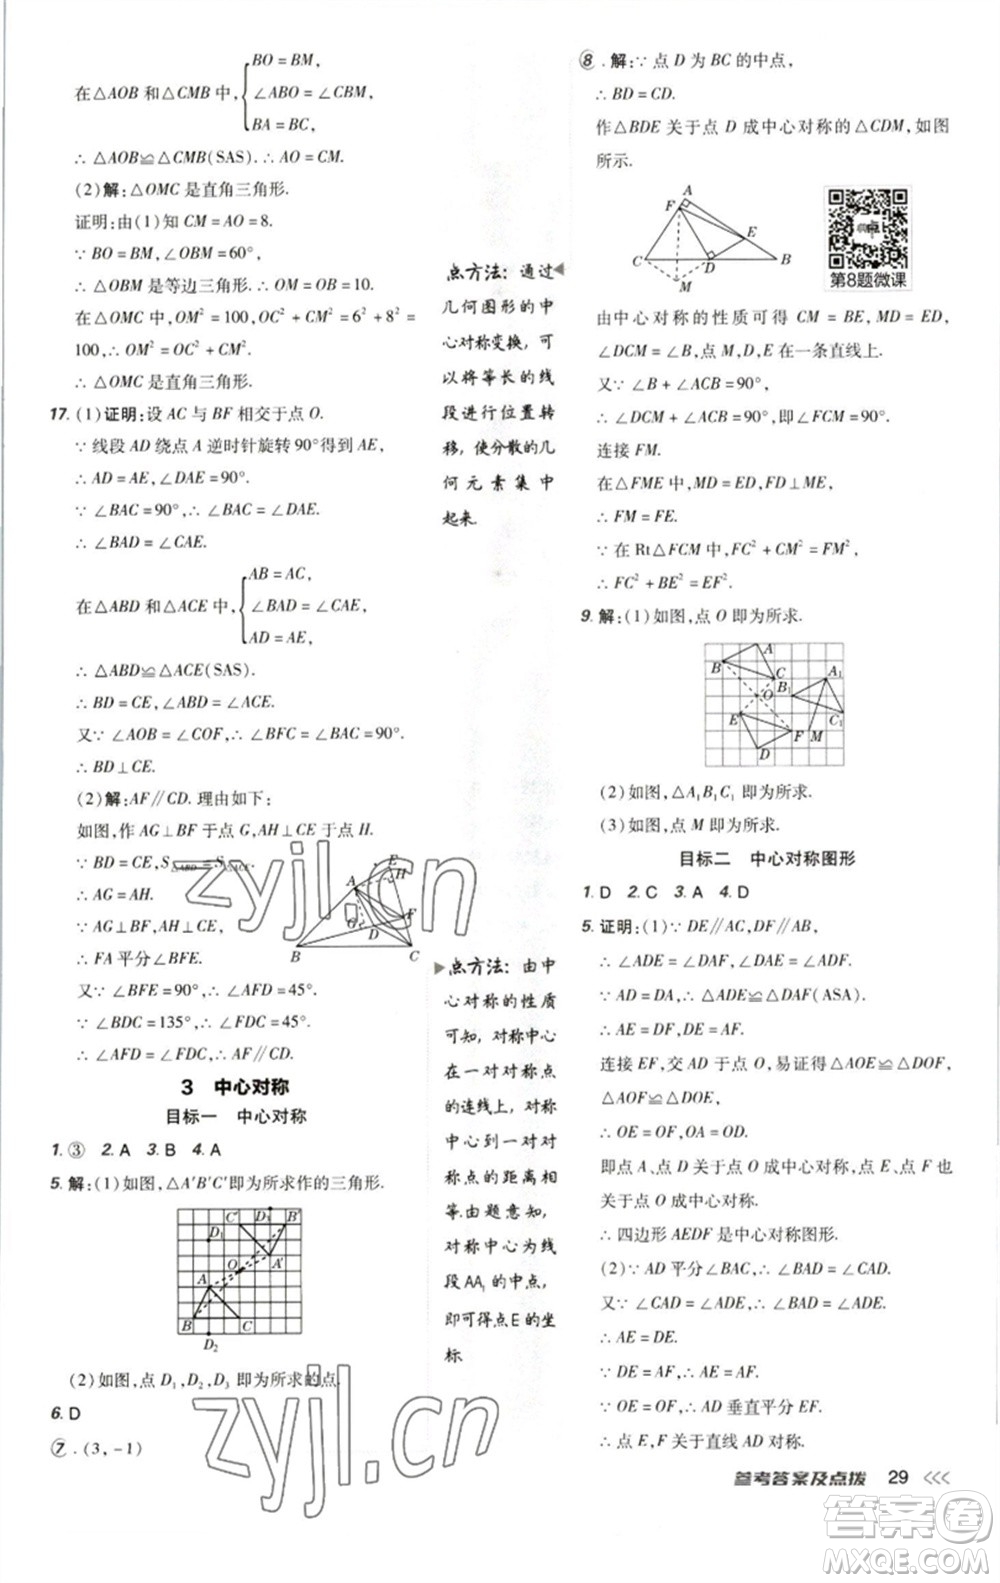 BO = BM,
在△AOB 和△CMB 中, ∠ABO = ∠CBM,
BA = BC,
∴ △AOB≌△CMB(SAS). ∴ AO = CM.
(2)解:△OMC 是直角三角形.
证明:由(1)知 CM = AO = 8.
∵ BO = BM, ∠OBM = 60°,
∴ △OBM 是等边三角形. ∴ OM = OB = 10.
在△OMC 中, OM² = 100, OC² + CM² = 6² + 8² =
100, ∴ OM² = OC² + CM².
∴ △OMC 是直角三角形.
17. (1)证明:设 AC 与 BF 相交于点 O.
∵ 线段 AD 绕点 A 逆时针旋转 90°得到 AE,
∴ AD = AE, ∠DAE = 90°.
∵ ∠BAC = 90°, ∴ ∠BAC = ∠DAE.
∴ ∠BAD = ∠CAE.
AB = AC,
在△ABD 和△ACE 中, ∠BAD = ∠CAE,
AD = AE,
∴ △ABD≌△ACE(SAS).
∴ BD = CE, ∠ABD = ∠ACE.
又∵ ∠AOB = ∠COF, ∴ ∠BFC = ∠BAC = 90°.
∴ BD⊥CE.
(2)解:AF∥CD. 理由如下:
如图,作 AG⊥BF 于点 G, AH⊥CE 于点 H.
∵ BD = CE, S△ABD = S△ACE
∴ AG = AH.
又∵ AG⊥BF, AH⊥CE,
∴ FA 平分∠BFE.
又∵ ∠BFE = 90°, ∴ ∠AFD = 45°.
∵ ∠BDC = 135°, ∴ ∠FDC = 45°.
∴ ∠AFD = ∠FDC, ∴ AF∥CD.
E
H
A
G
F
D
B
C
3 中心对称
目标一 中心对称
1. ③ 2. A 3. B 4. A
5. 解:(1)如图,△A′B′C′即为所求作的三角形.
C′
D
B′
D₁
A′
O
A
B
C
D₂
(2)如图,点 D₁, D₂, D 即为所求的点.
6. D
⑦. (3, -1)
点方法:通过
几何图形的中
心对称变换,可
以将等长的线
段进行位置转
移,使分散的几
何元素集中
起来.
点方法:由中
心对称的性质
可知,对称中心
在一对对称点
的连线上,对称
中心到一对对
称点的距离相
等.由题意知,
对称中心为线
段 AA₁ 的中点,
即可得点 E 的坐
标.
⑧. 解:∵ 点 D 为 BC 的中点,
∴ BD = CD.
作△BDE 关于点 D 成中心对称的△CDM,如图
所示.
A
F
E
C
D
B
M
第8题微课
由中心对称的性质可得 CM = BE, MD = ED,
∠DCM = ∠B,点 M, D, E 在一条直线上.
又∵ ∠B + ∠ACB = 90°,
∴ ∠DCM + ∠ACB = 90°,即∠FCM = 90°.
连接 FM.
在△FME 中, MD = ED, FD⊥ME,
∴ FM = FE.
∵ 在 Rt△FCM 中, FC² + CM² = FM²,
∴ FC² + BE² = EF².
9. 解:(1)如图,点 O 即为所求.
A
B
C
A₁
O
B₁
E
C₁
F
M
D
(2)如图,△A₁B₁C₁ 即为所求.
(3)如图,点 M 即为所求.
目标二 中心对称图形
1. D 2. C 3. A 4. D
5. 证明:(1)∵ DE∥AC, DF∥AB,
∴ ∠ADE = ∠DAF, ∠EAD = ∠FDA.
∵ AD = DA, ∴ △ADE≌△DAF(ASA).
∴ AE = DF, DE = AF.
连接 EF,交 AD 于点 O,易证得△AOE≌△DOF,
△AOF≌△DOE,
∴ OE = OF, OA = OD.
即点 A、点 D 关于点 O 成中心对称,点 E、点 F 也
关于点 O 成中心对称.
∴ 四边形 AEDF 是中心对称图形.
(2)∵ AD 平分∠BAC, ∴ ∠EAD = ∠FAD.
又∵ ∠ADE = ∠FAD, ∴ ∠EAD = ∠ADE.
∴ AE = DE.
∵ DE = AF, ∴ AE = AF.
又∵ OE = OF, ∴ AD 垂直平分 EF.
∴ 点 E、点 F 关于直线 AD 对称.
参考答案及点拨 29
zyjl.cn
zyjl.cn
答案圈
MXQE.COM